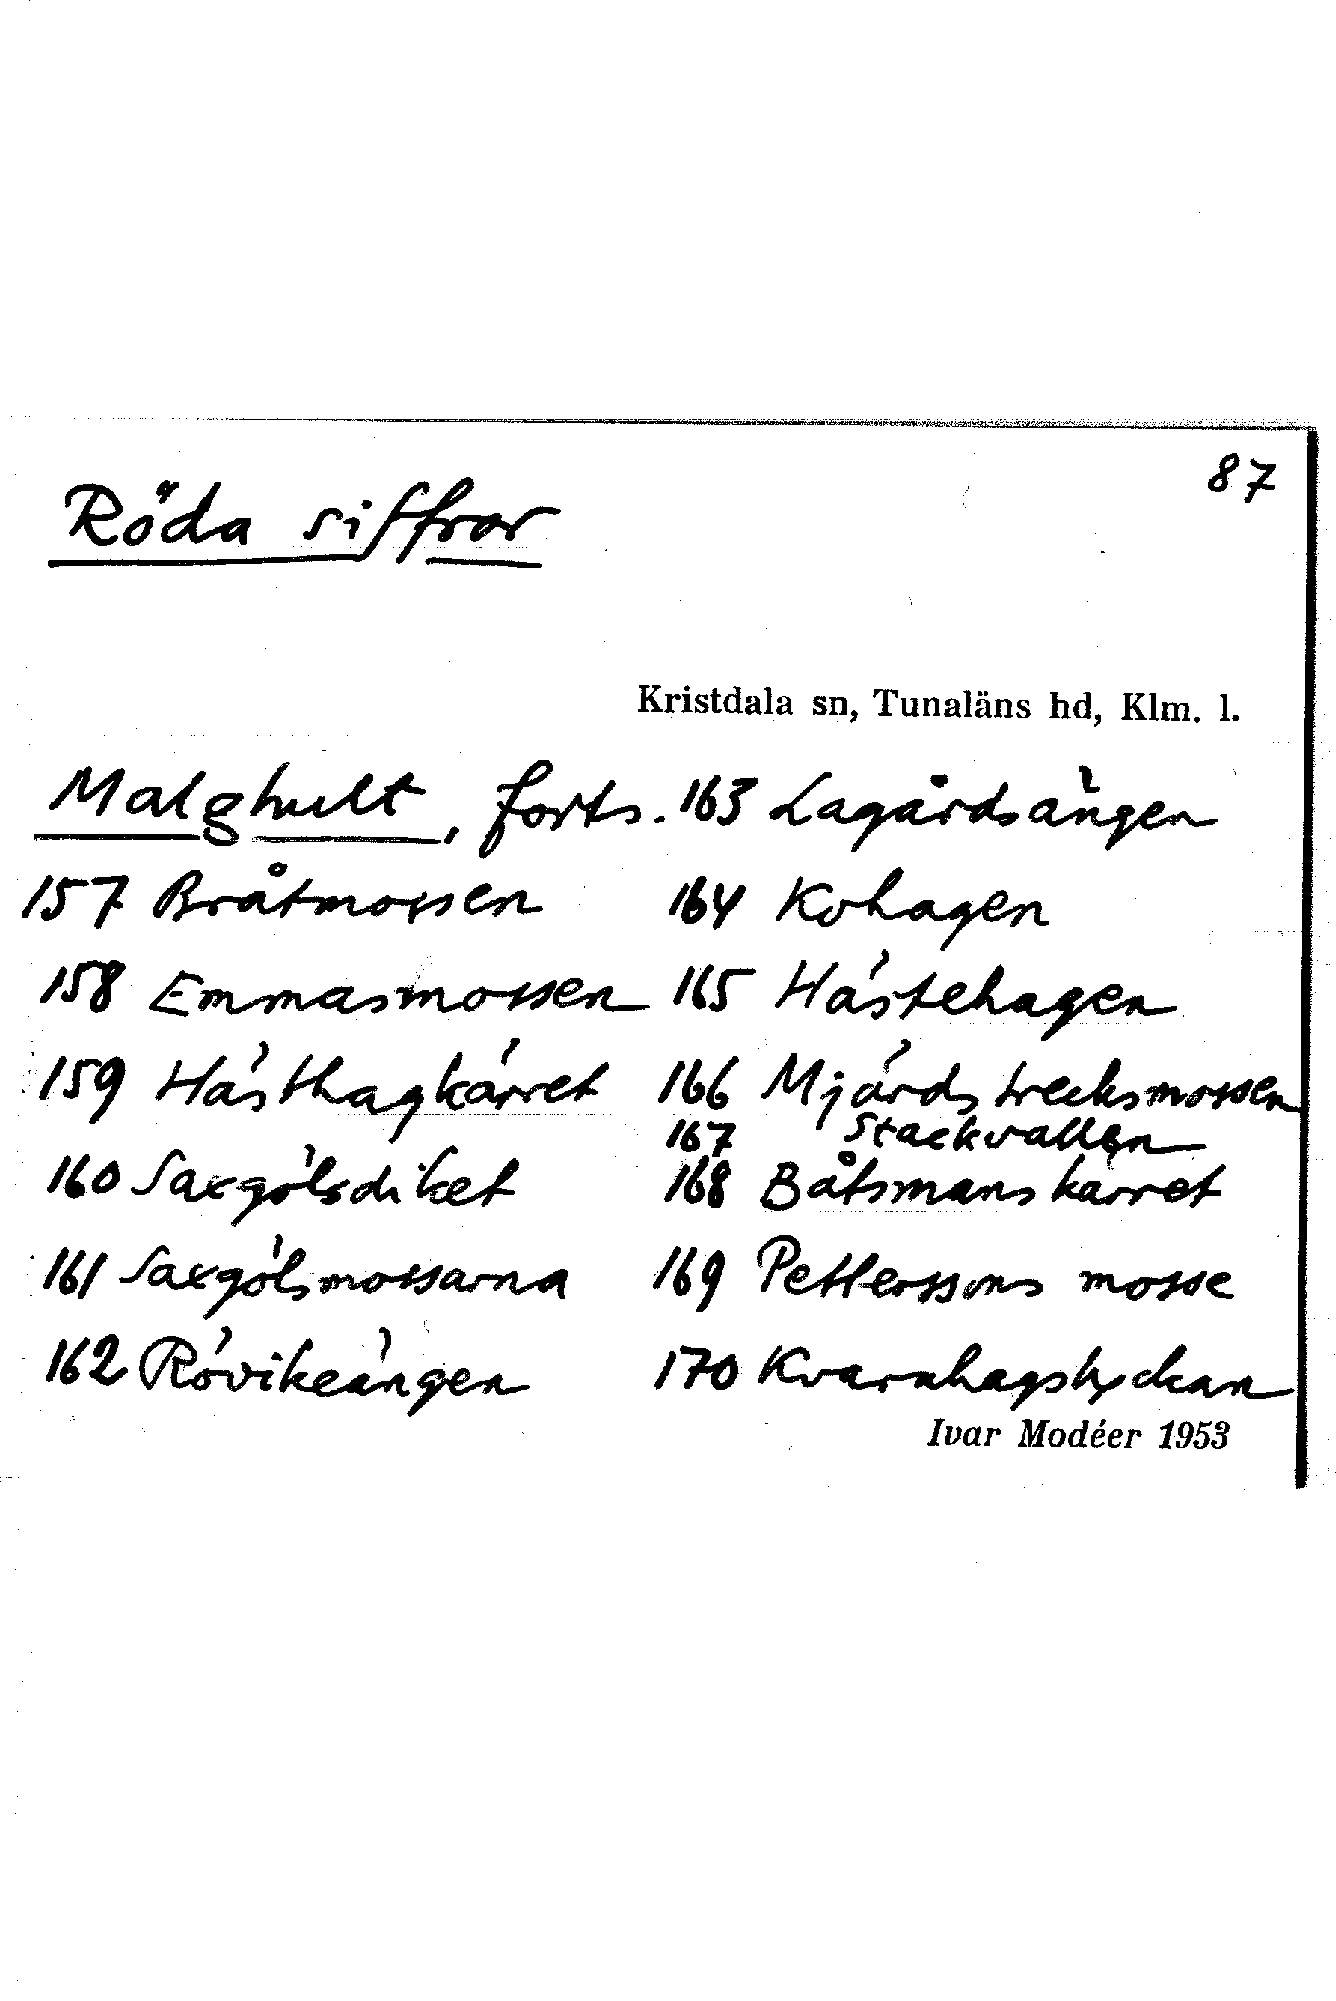 87
Röda siffror
Kristdala sn, Tunaläns hd, Klm. l.
Malghult, forts.
157 Bråtmossen
158 Emmasmossen
159 Hästhagkärret
160 Saxgölsdiket
161 Saxgölsmossarna
162 Rövikeängen
163 Lagårdsängen
164 Kohagen
165 Hästehagen
166 Mjärdstrecksmossen
167 Stackvallen
168 Båtsmanskärret
169 Petterssons mosse
170 Kvarnhagslyckan
Ivar Modéer 1953